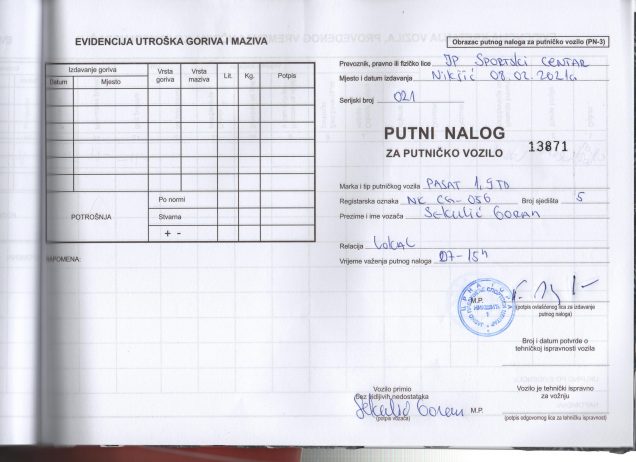 EVIDENCIJA UTROŠKA GORIVA I MAZIVA
Izdavanje goriva
Datum
Mjesto
Vrsta goriva
Vrsta maziva
Lit.
Kg.
Potpis
POTROŠNJA
Po normi
Stvarna
+ -
NAPOMENA:
Obrazac putnog naloga za putničko vozilo (PN-3)
Prevoznik, pravno ili fizičko lice JP SPORTSKI CENTAR
Mjesto i datum izdavanja Nikšić 08.02.2021g
Serijski broj 021
PUTNI NALOG
ZA PUTNIČKO VOZILO
13871
Marka i tip putničkog vozila PASAT 1,9TD
Registarska oznaka NK CG-056 Broj sjedišta 5
Prezime i ime vozača SEKULIĆ GORAN
Relacija LOKAL
Vrijeme važenja putnog naloga 07-15h
M.P.
(potpis ovlašćenog lica za izdavanje
putnog naloga)
Broj i datum potvrde o
tehničkoj ispravnosti vozila
Vozilo primio
bez vidljivih nedostataka
Sekulić Goran
(potpis vozača)
M.P.
Vozilo je tehnički ispravno
za vožnju
(potpis odgovornog lica za tehničku ispravnost)